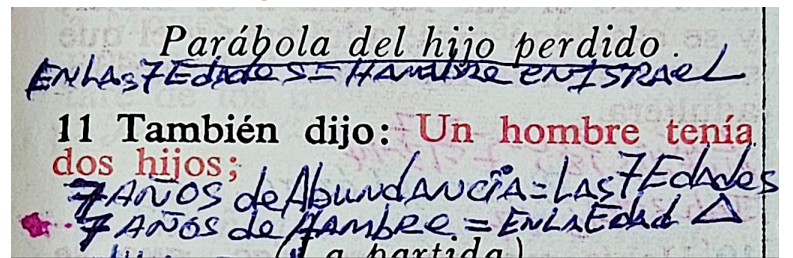 Parábola del hijo perdido.
EN LAS 7 EdAdES = HAMBRE EN ISRAEL
11 También dijo: Un hombre tenía
dos hijos;
7 AÑOS de AbundANCIA = LAS 7 EdAdES
7 AÑOS de HAMBRE = EN LA EdAd Δ
(La partida)